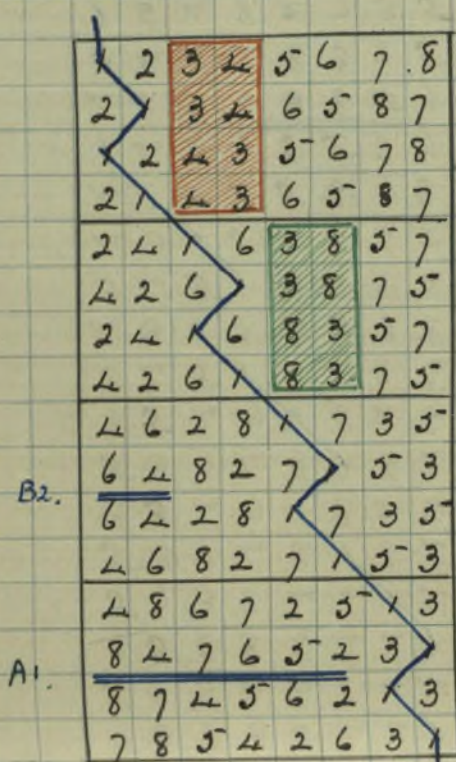 1 2 3 4 5 6 7 8
2 1 3 4 6 5 8 7
1 2 4 3 5 6 7 8
2 1 4 3 6 5 8 7
2 4 1 6 3 8 5 7
4 2 6 1 3 8 7 5
2 4 1 6 8 3 5 7
4 2 6 1 8 3 7 5
4 6 2 8 1 7 3 5
6 4 8 2 7 1 5 3
B2.
6 4 2 8 1 7 3 5
4 6 8 2 7 1 5 3
4 8 6 7 2 5 1 3
8 4 7 6 5 2 3 1
A1.
8 7 4 5 6 2 1 3
7 8 5 4 2 6 3 1